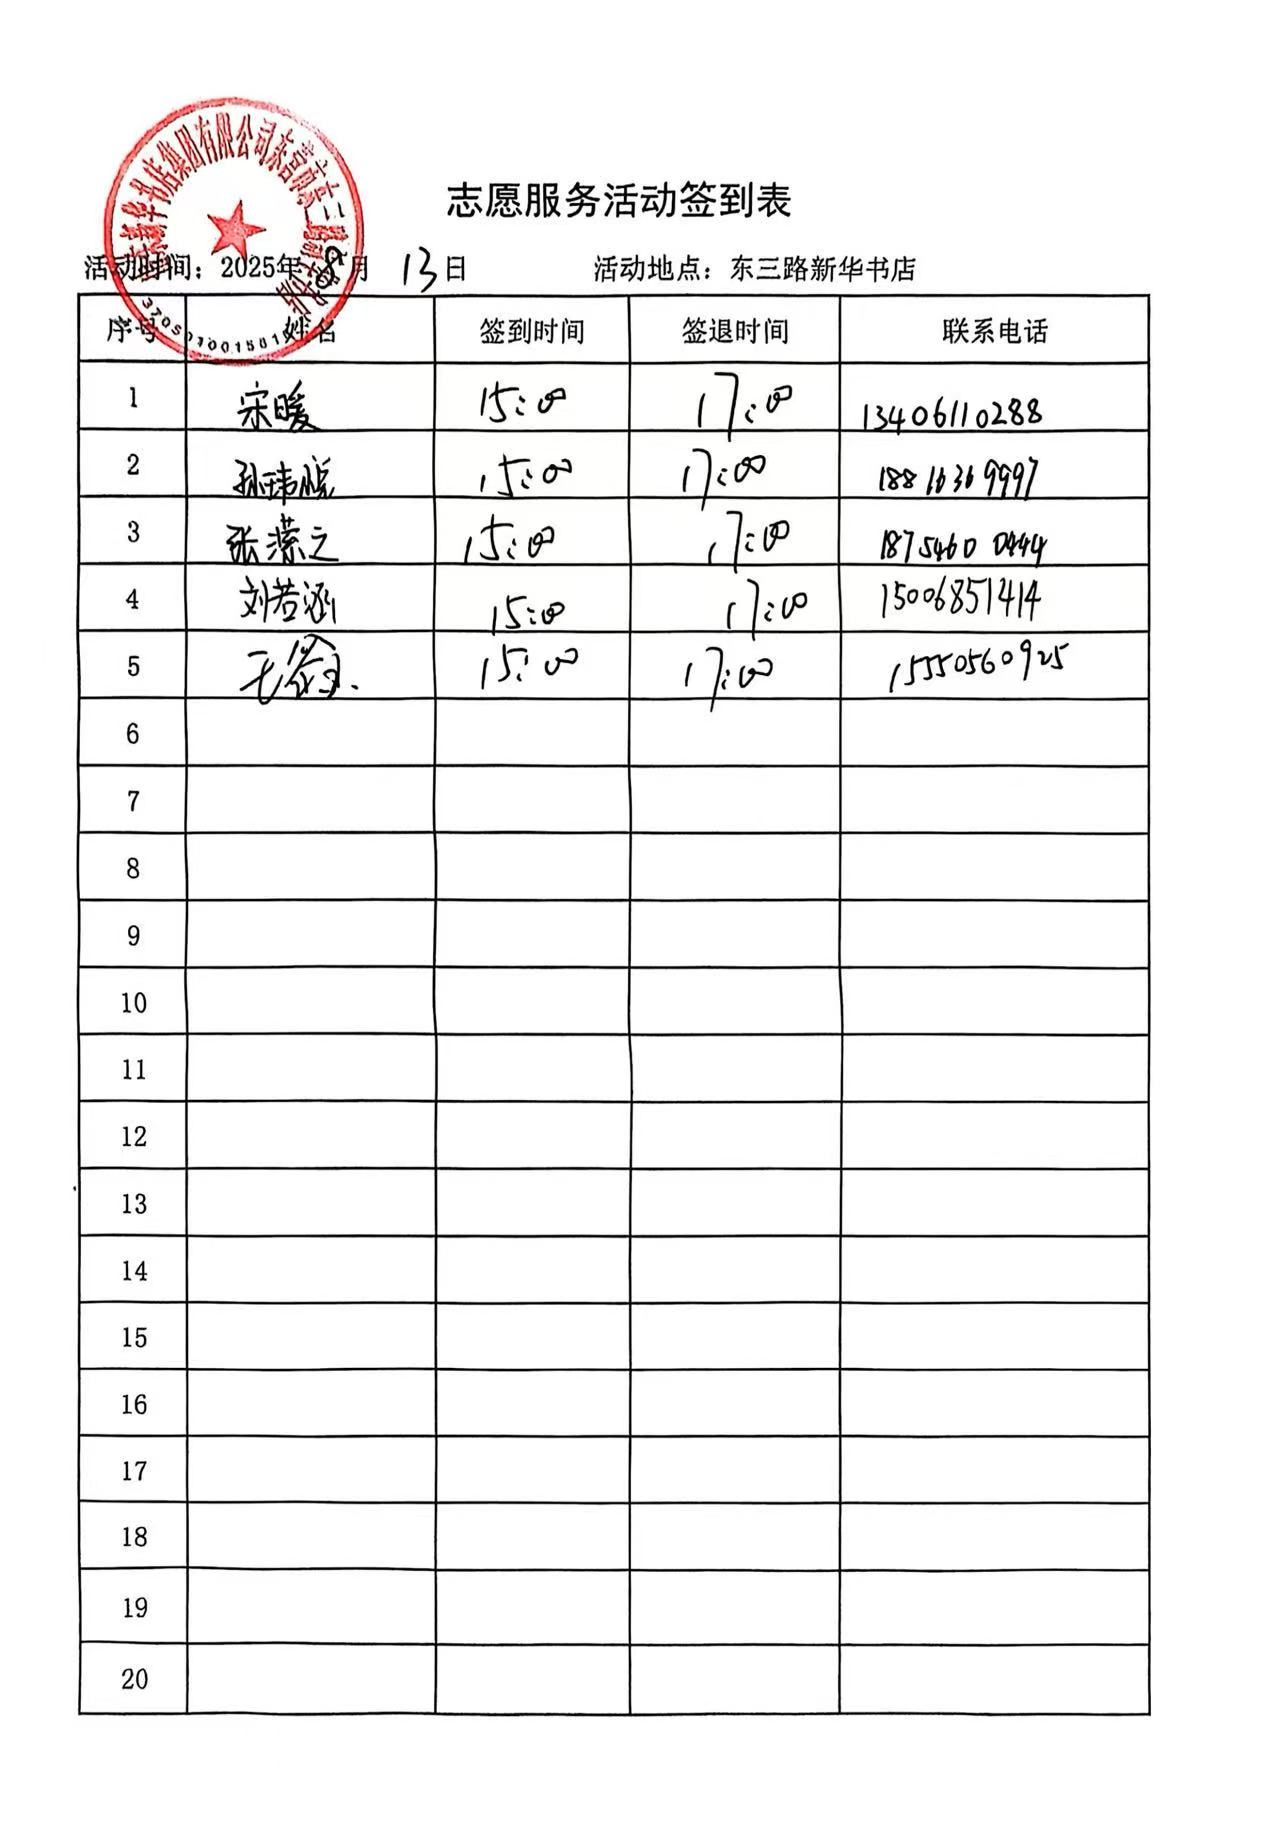 志愿服务活动签到表
活动时间：2025年8月 13日 活动地点：东三路新华书店
序号 姓名 签到时间 签退时间 联系电话
1 宋暖 15:00 17:00 13406110288
2 孙玮悦 15:00 17:00 18816369997
3 张潆之 15:00 17:00 18754600444
4 刘若涵 15:00 17:00 15006851414
5 15:00 17:00 15550560925
6
7
8
9
10
11
12
13
14
15
16
17
18
19
20